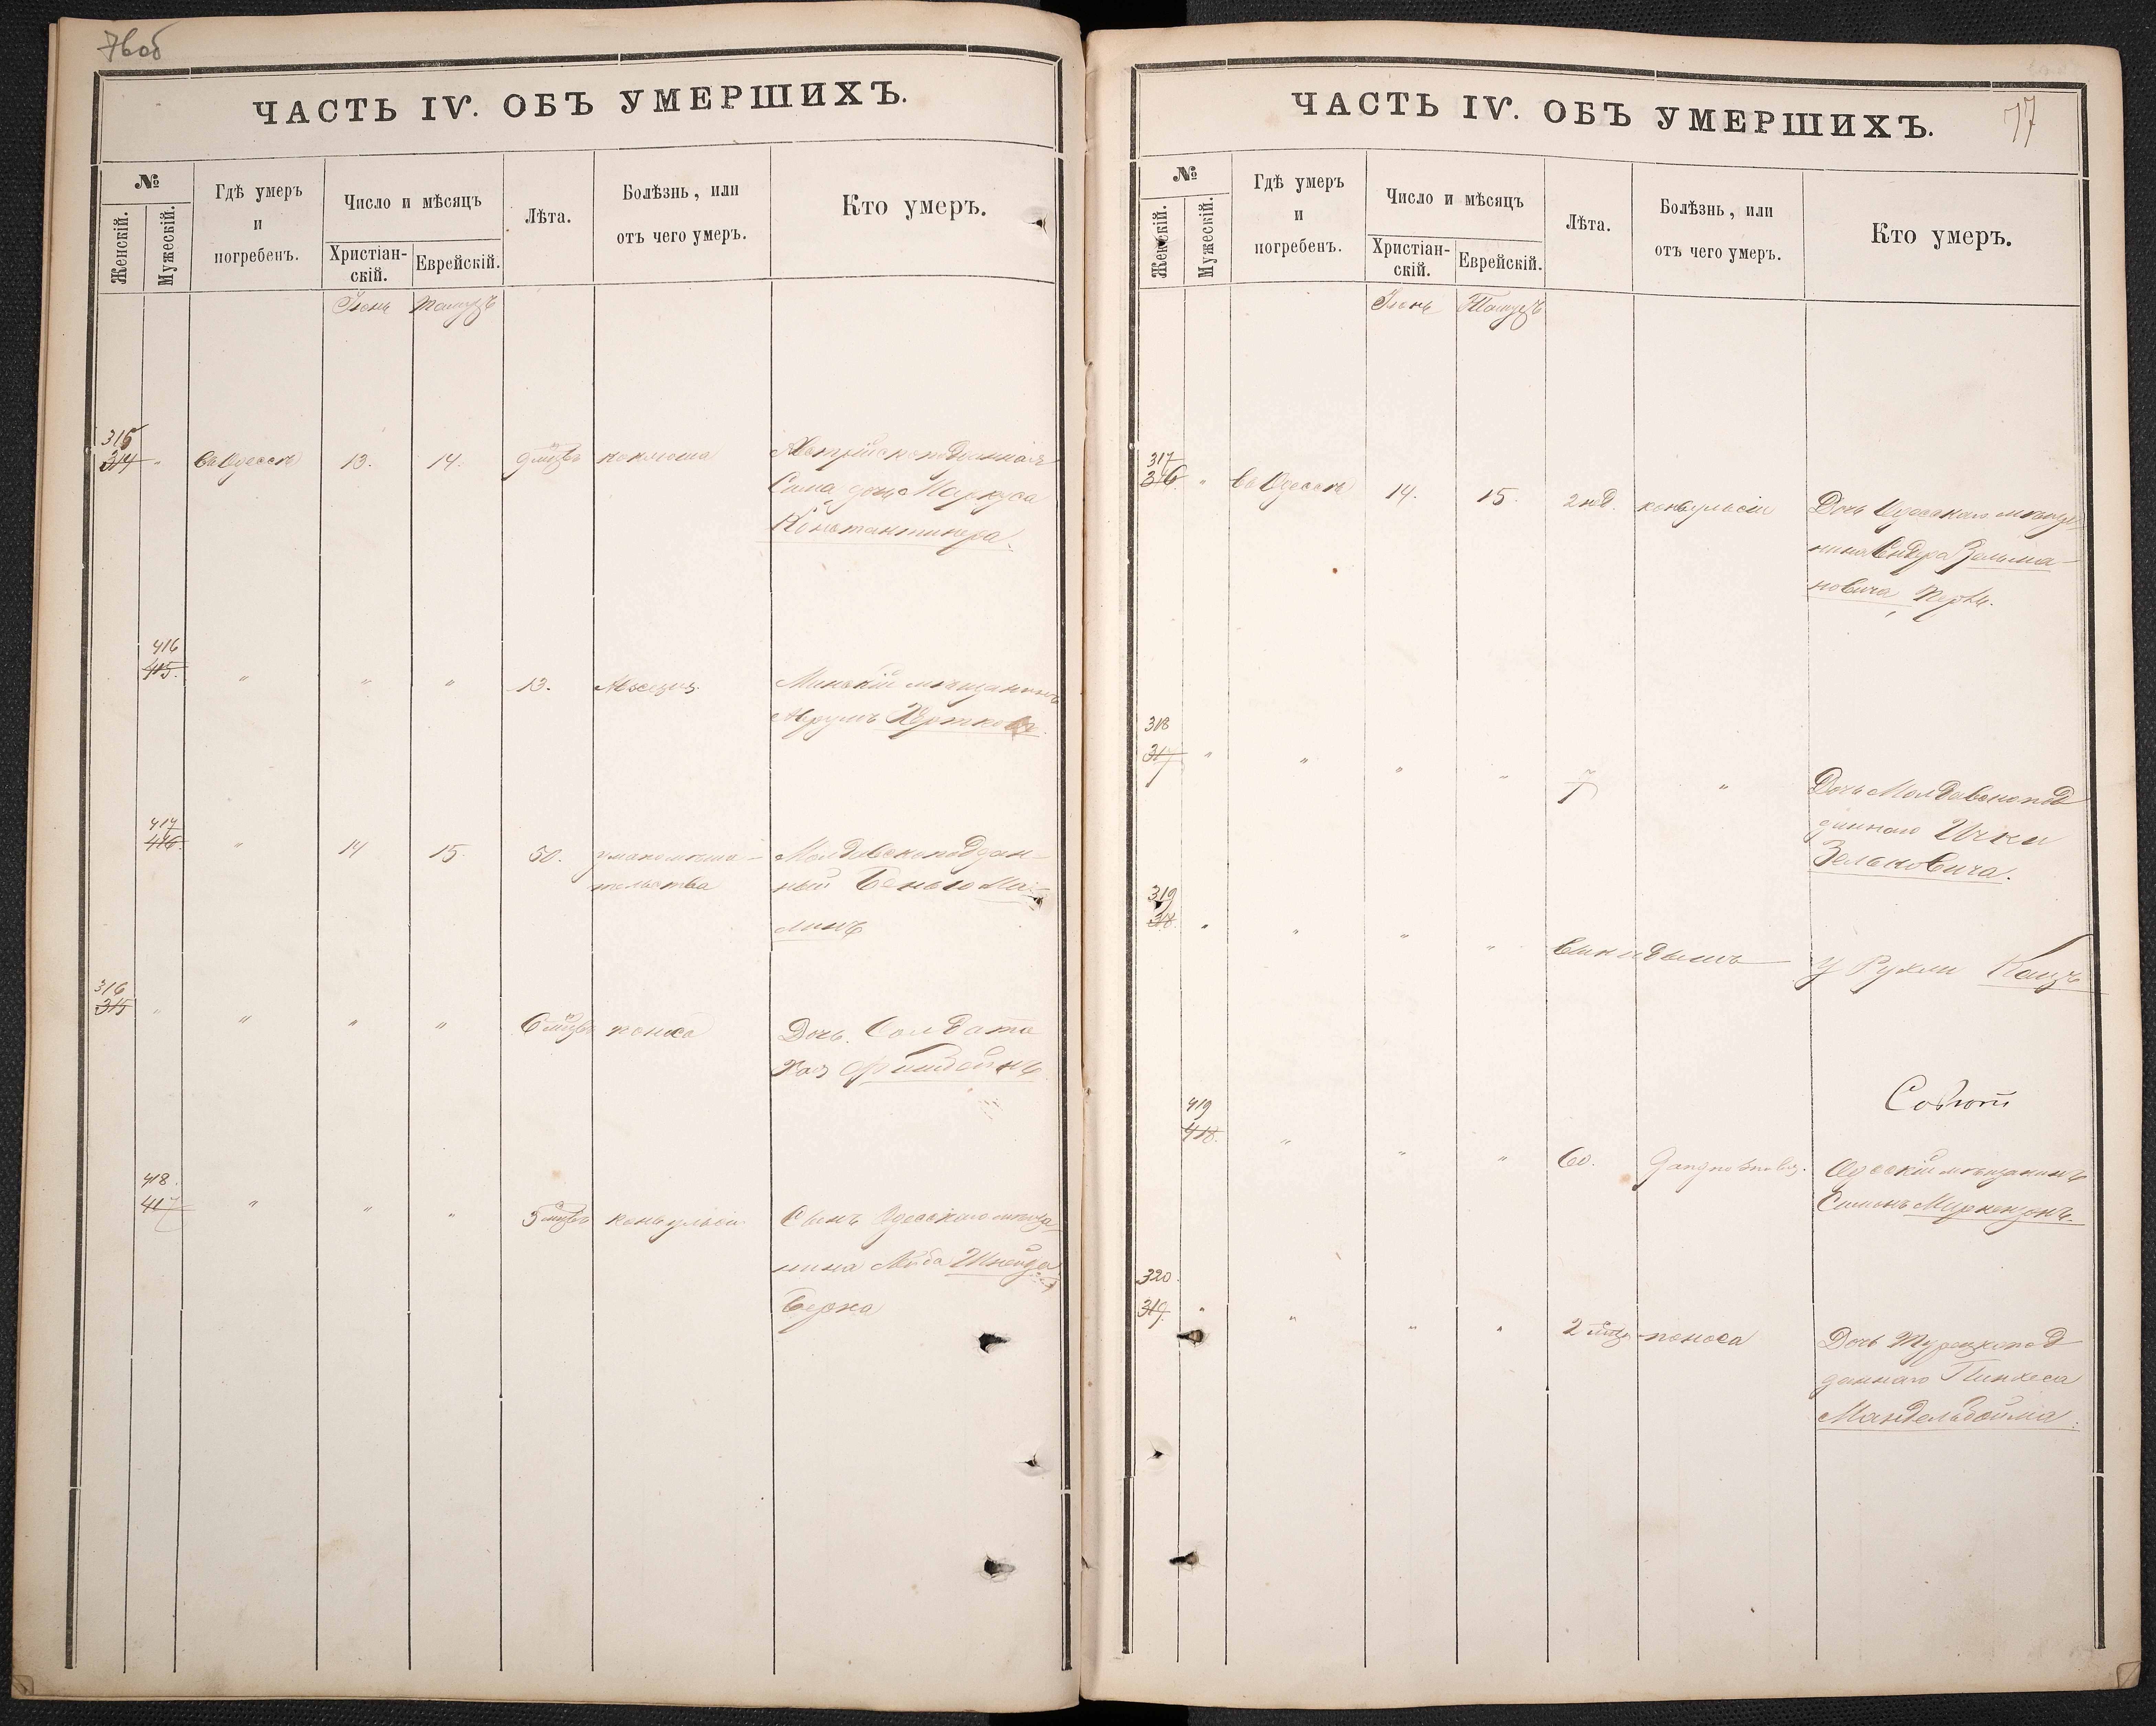 76об
ЧАСТЬ IV. ОБЪ УМЕРШИХЪ.
№
Женскій.
Мужескій.
Гдѣ умеръ
и
погребенъ.
Число и мѣсяцъ
Христіан-
скій.
Еврейскій.
Лѣта.
Болѣзнь, или
отъ чего умеръ.
Кто умеръ.
Іюнь Тамузъ
315
314 " въ Одессѣ 13. 14. 9 мцвъ коклюша Австрійскоподданная
Сима дочь Маркуса
Константинера.
416
415. " " " 13. Минскій мѣщанинъ
Аврумъ
417
416. " 14 15. 50. умапомѣша-
тельства
Молдавскоподдан-
ный Беньями-
минъ
316
315 " " " " 6 мцвъ поноса Дочь Солдата
Хаз Фишбейнъ
418.
417 " " " 5 мцвъ конвульсіи Сынъ Одесскаго мѣща
нина Лейба Шнейда
Берка
77
ЧАСТЬ IV. ОБЪ УМЕРШИХЪ.
№
Женскій.
Мужескій.
Гдѣ умеръ
и
погребенъ.
Число и мѣсяцъ
Христіан-
скій.
Еврейскій.
Лѣта.
Болѣзнь, или
отъ чего умеръ.
Кто умеръ.
Іюнь Тамузъ
317
316 " въ Одессѣ 14. 15. 2 нед. конвульсіи Дочь Одесскаго мѣща
нина Сендера Зельма-
новича
318
317 " " " " " Дочь Молдавскопод
даннаго Ички
Зельковича.
319
318. " " " " выкидышъ У Рухли Кацъ
419
418. " " " 60. Одесскій мѣщанинъ
Симонъ
320.
319. " " " " 2 мцв поноса Дочь Турецкопод
даннаго Пинхеса
Мандельбойма.